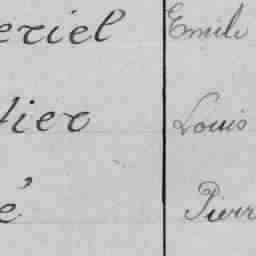 eriel Emile
tier Louis
é Pierr